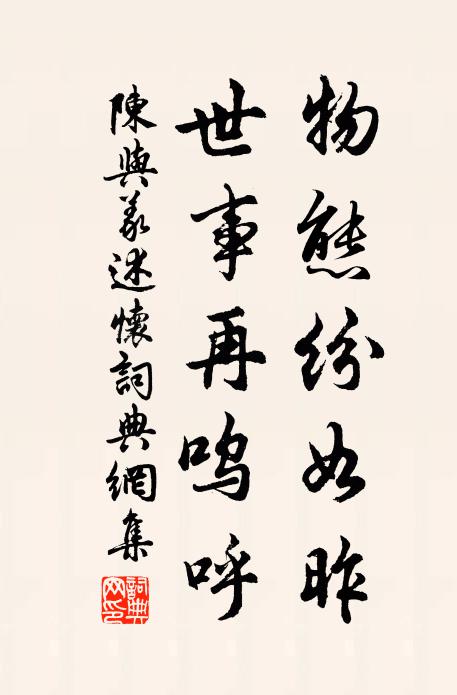 物態紛如昨
世事再嗚呼
陳與義述懷詞典網集
詞典网印